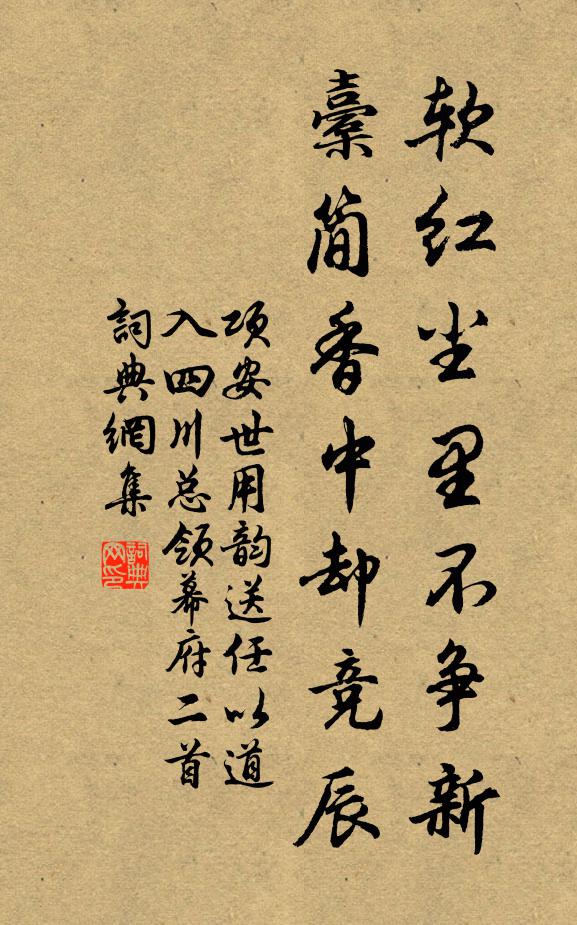 软红尘里不争新
橐简香中却竞辰
项安世用韵送任以道
入四川总领幕府二首
詞典網集
詞典网印